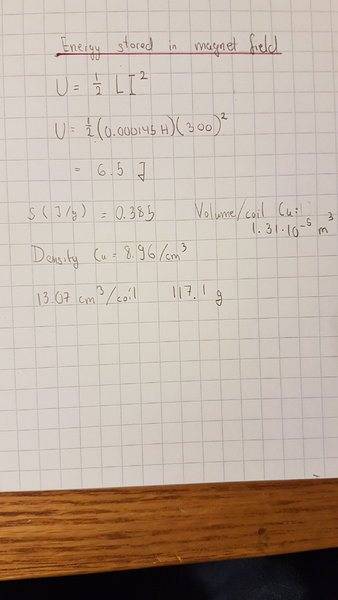 Energy stored in magnet field
U = 1/2 L I²
U = 1/2 (0.000145 H)(300)²
= 6.5 J
S (J/g) = 0.385 Volume/coil Cu:
1.31·10⁻⁵ m³
Density Cu = 8.96/cm³
13.07 cm³/coil 117.1 g